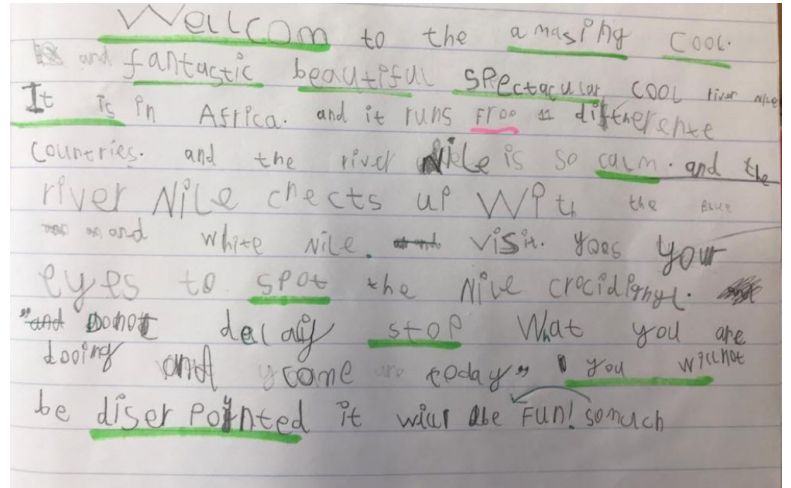 Wellcom to the amasing cool.
and fantastic beautiful spectacular cool river nile
It is in Africa. and it runs froo 11 diftherente
countries. and the river Nile is so calm. and the
river Nile cnects up with the Blue
and white Nile. visit. yoes your
eyes to spot the Nile crocidignyl.
"and Donot delaiy stop What you are
dooing and come today" you willnot
be diserpoynted it will be FUN! somuch